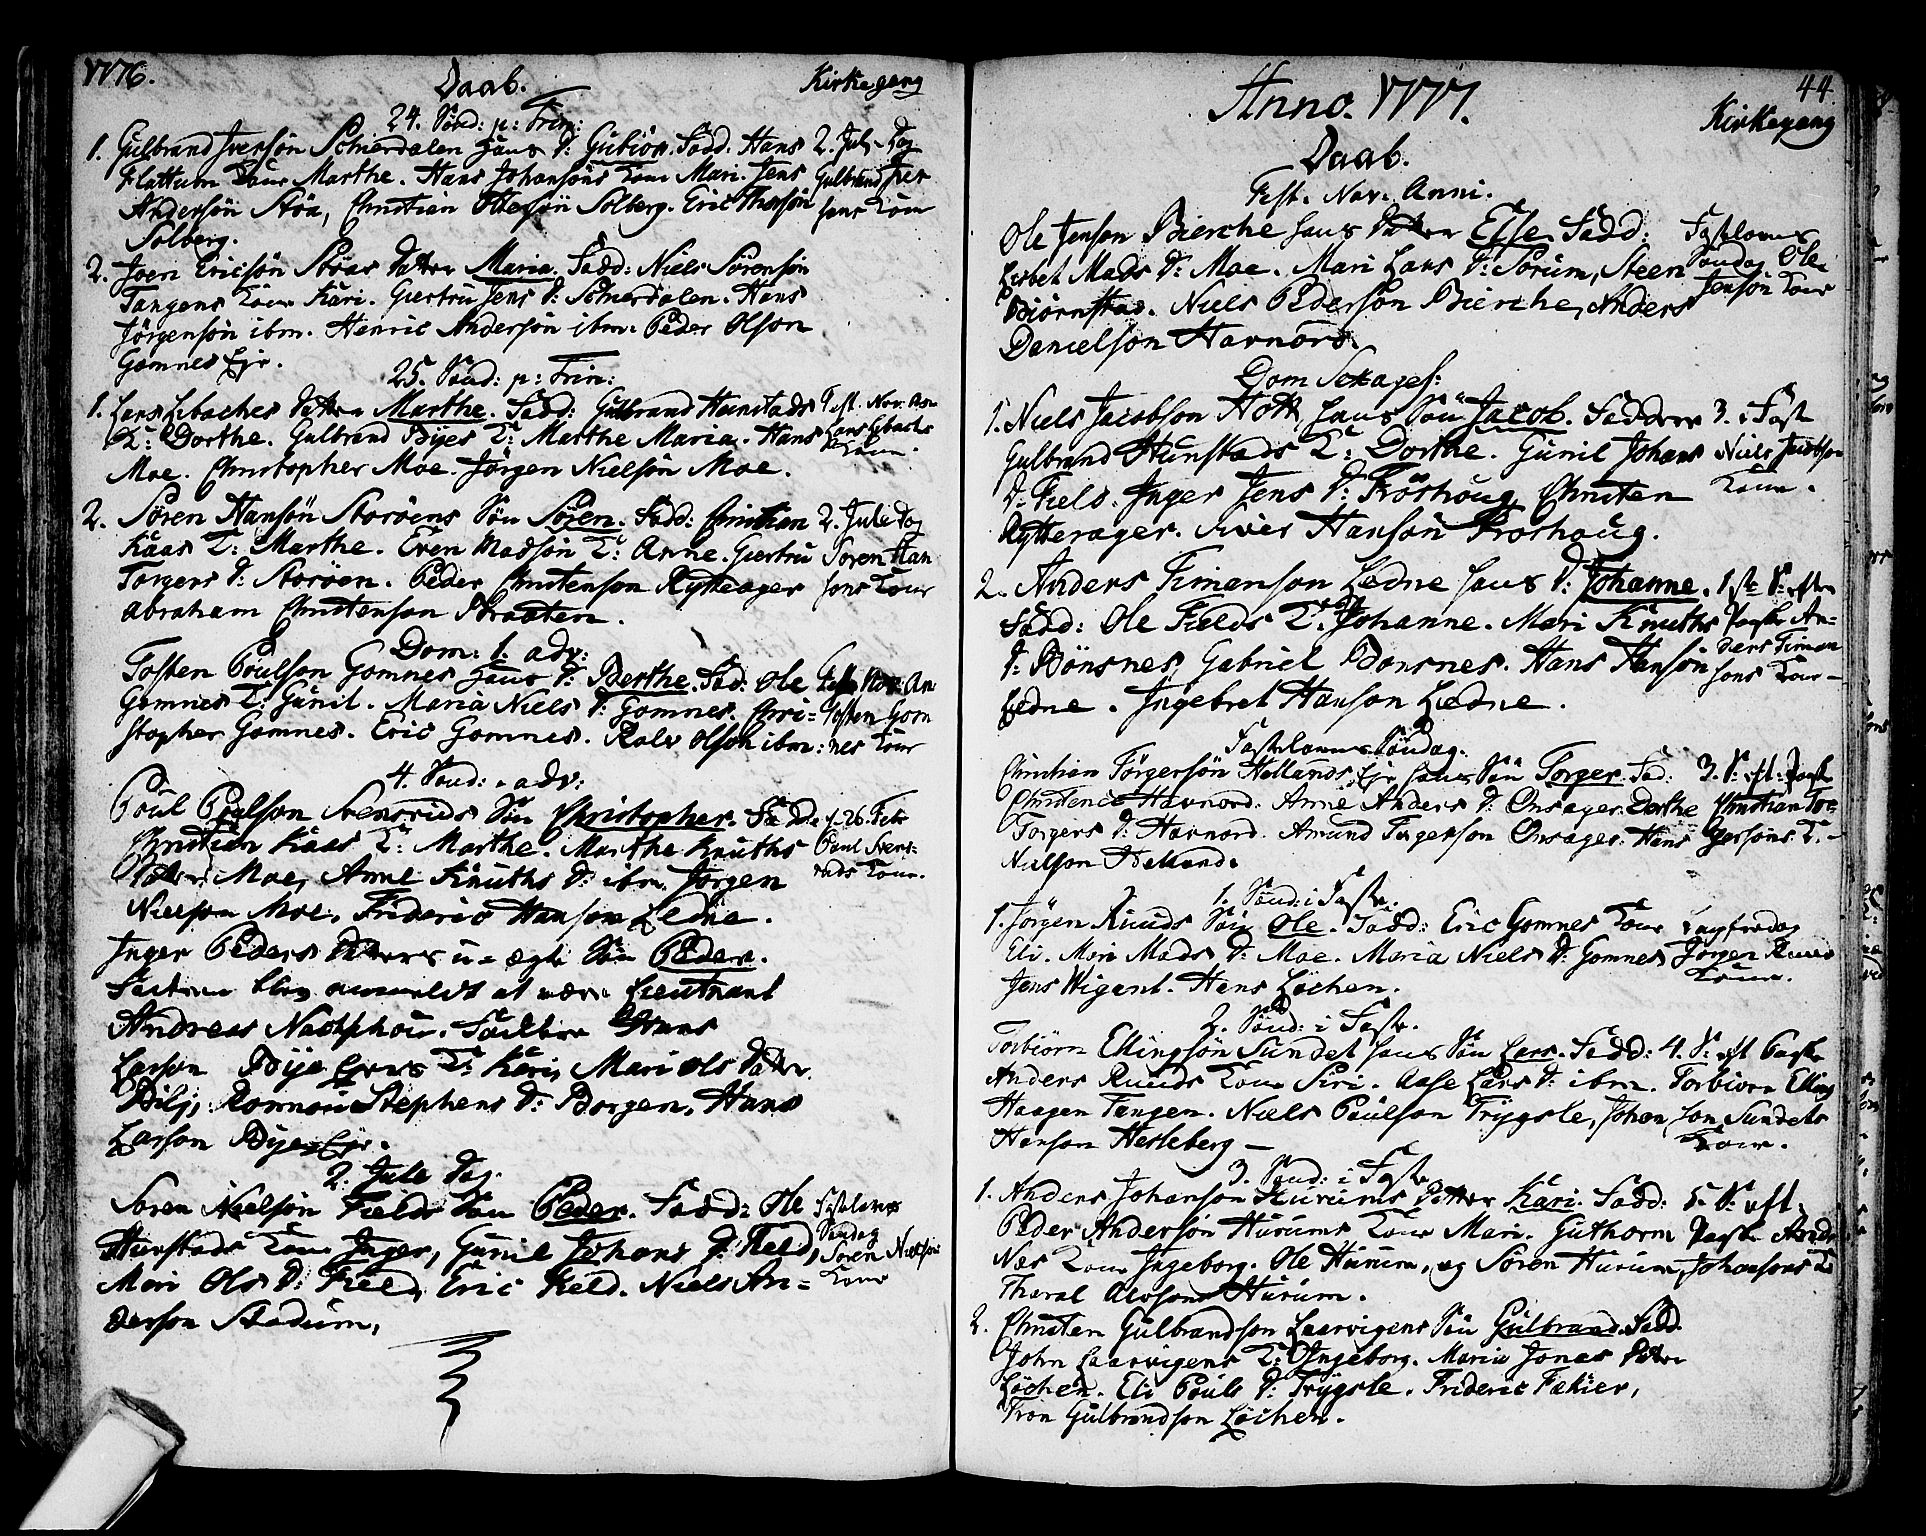 1776.
Daab.
Kirkegang
24. Sönd: p: Trin:
1. Gulbrand Iversön Schierdalen Hans D: Gubiör. Fadd. Hans
Flattum Kone Marthe. Hans Johansöns Kone Mari. Jens
Andersön Stöa, Christian Olesön Solberg. Eric Thorsön
Solberg.
2. Jule Dag
Gulbrand Iver
sens Kone
2. Joen Ericsön Stöas Datter Maria. Fadd: Niels Sörensön
Tangens Kone Kari. Giertru Jens D: Schierdalen. Hans
Jörgensön ibm. Henric Andersön ibm. Peder Olson
Gomnes Eje.
25. Sönd: p: Trin:
1. Lars Datter Marthe. Fadd: Gulbrand Hunstads
K: Dorthe. Gulbrand Byes K: Marthe Maria. Hans
Moe. Christopher Moe. Jörgen Nielsön Moe.
Fest. Nov. An.
Lars
Kone.
2. Sören Hansön Storöens Sön Sören. Fadd: Christian
Kaas K: Marthe. Even Madsön K: Anne. Giertru
Torgers D: Storöen. Peder Christenson Rytteager
Abraham Christenson Braaten.
2. Jule Dag
Sören Han
sons Kone
Dom: 1. adv:
Tosten Poulson Gomnes Hans D: Berthe. Fad: Ole
Gomnes K: Gunil. Maria Niels D: Gomnes. Chri=
stopher Gomnes. Eric Gomnes. Rolv Olson ibm:
Fest. Nov: An
Tosten Gom
nes Kone
4. Sönd: adv:
Poul Poulson Svensrids Sön Christopher. Fadd:
Christian Kaas K: Marthe. Marthe Knuths
Datter Moe, Anne Knuths D: ibm. Jörgen
Nielson Moe, Frideric Hanson Ledne.
d. 26. Febr
Poul Svens-
rids Kone.
Inger Peders Datters u-ægte Sön Peder.
Faderen blev anmeldt at være Lieutnant
Andreas . Faddere Hans
Larson Bye Ejes K: Kari, Mari Ols Datter
, Stephens D: Borgen, Hans
Larson Bye-Eje.
2. Jule Dag.
Soren Nielsön Fields Sön Peder. Fadd: Ole
Hunstads Kone Inger, Gunil Johans D: Field,
Mari Ols D: Field, Eric Field. Niels An=
derson Stadum,
Fastelavns
Söndag
Soren Nielsöns
Kone
44.
Anno. 1777.
Kirkegang
Daab.
Fest. Nov. Anni.
Ole Jenson Bierche hans Datter Else. Fadd:
Lisbet Mads D: Moe. Mari Lars D: Sorum, Steen
Biörnstad. Niels Pederson Bierche, Anders
Danielson Havnörs.
Fastelavns
Söndag Ole
Jensön Kone
Dom Sexages:
1. Niels Jacobson Hott hans Sön Jacob. Faddere
Gulbrand Hunstads K: Dorthe. Gunil Johans
D: Field. Inger Jens D: Fröshoug, Christen
Rytterager. Siver Hanson Froshoug.
3. i Fast
Niels Jacobson
Kone.
2. Anders Timanson Ledne hans D: Johanne.
Fadd: Ole Fields K: Johanne. Mari Knuths
D: Bönsnes, Gabriel Bonsnes. Hans Hansön
Ledne. Ingebret Hanson Ledne.
1ste S: efter
Paaske An=
ders Timan
sons Kone
Fastelavns Söndag.
Christian Törgersön Hollands Eje hans Sön Torger. Fad:
Christence Havnord. Anne Anders D: Onsager. Dorthe
Torgers D: Havnord. Amund Torgerson Onsager. Hans
Nielson
3. S: eft. Paask
Christian Tor-
gersons K:
1. Sönd: i Faste.
1. Jörgen Ruuds Sön Ole. Fadd: Eric Gomnes Kone
Eli. Mari Mads D: Moe. Maria Niels D: Gomnes
Jens Wigant. Hans Löchen.
Langfredag
Jörgen Ruuds
Kone.
2. Sönd: i Faste.
Torbiörn Ellingsön Sundet hans Sön Lars. Fadd:
Anders Ruuds Kone Siri. Aase Lars D: ibm.
Haagen Tangen. Niels Poulson Trygsle, Johan
Hanson Hesleberg
4. S: eft Paaske
Torbiörn Elling
son Sundets
Kone.
3. Sönd: i Faste
1. Anders Johanson Hurums Datter Kari. Fadd:
Peder Andersön Hurums Kone Mari. Guthorm
Næs Kone Ingeborg. Ole Hurum, og Soren Hurum,
Tharal Hurum.
5. S: eft.
Paaske Anders
Johansons K
2. Christen Gulbrandson Laarvigens Sön Gulbrand. Fadd.
John Laarvigens K: Ingeborg. Maria Jonas Datter
Löchen. Eli Pouls D: Trygsle. Frideric ,
Tron Gulbrandson Löchen.